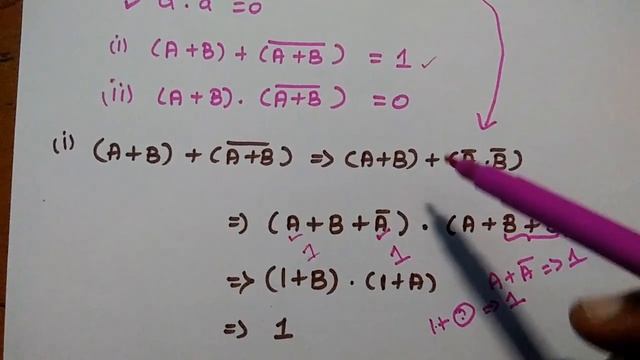 a . a = 0
(i) (A+B) + (A̅+̅B̅) = 1 ✓
(ii) (A+B) . (A̅+̅B̅) = 0
(i) (A+B) + (A̅+̅B̅) => (A+B) + (A̅ . B̅)
=> (A + B + A̅) . (A + B +
1 1
=> (1+B) . (1+A)
A + A̅ => 1
=> 1
1 + ? => 1